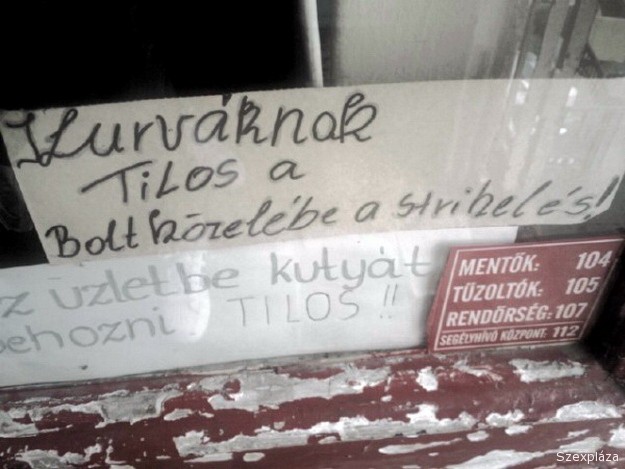 Kurváknak
TiLOS a
Bolt közelébe a strihelés!
z üzletbe kutyát
behozni TILOS !!
MENTŐK: 104
TŰZOLTÓK: 105
RENDŐRSÉG: 107
SEGÉLYHÍVÓ KÖZPONT: 112
Szexpláza